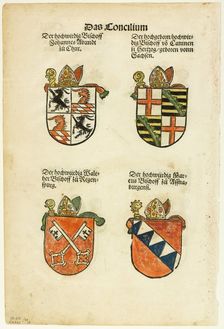 Das Concilium
Der hochwirdig Bischoff
Johannes Abundi
zů Chur.
Der hochgeborn hochwir-
dig Bischoff vō Cammen
ein Hertzog geboren vonn
Sachsen.
Der hochwirdig Wal-
ther Bischoff zů Regen-
spurg.
Der hochwirdig Mar-
cus Bischoff zů